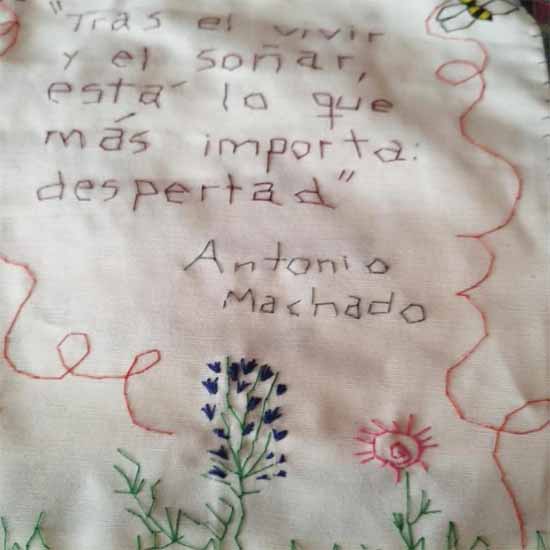 "Tras el vivir
y el soñar,
está lo que
más importa:
despertad"
Antonio
Machado